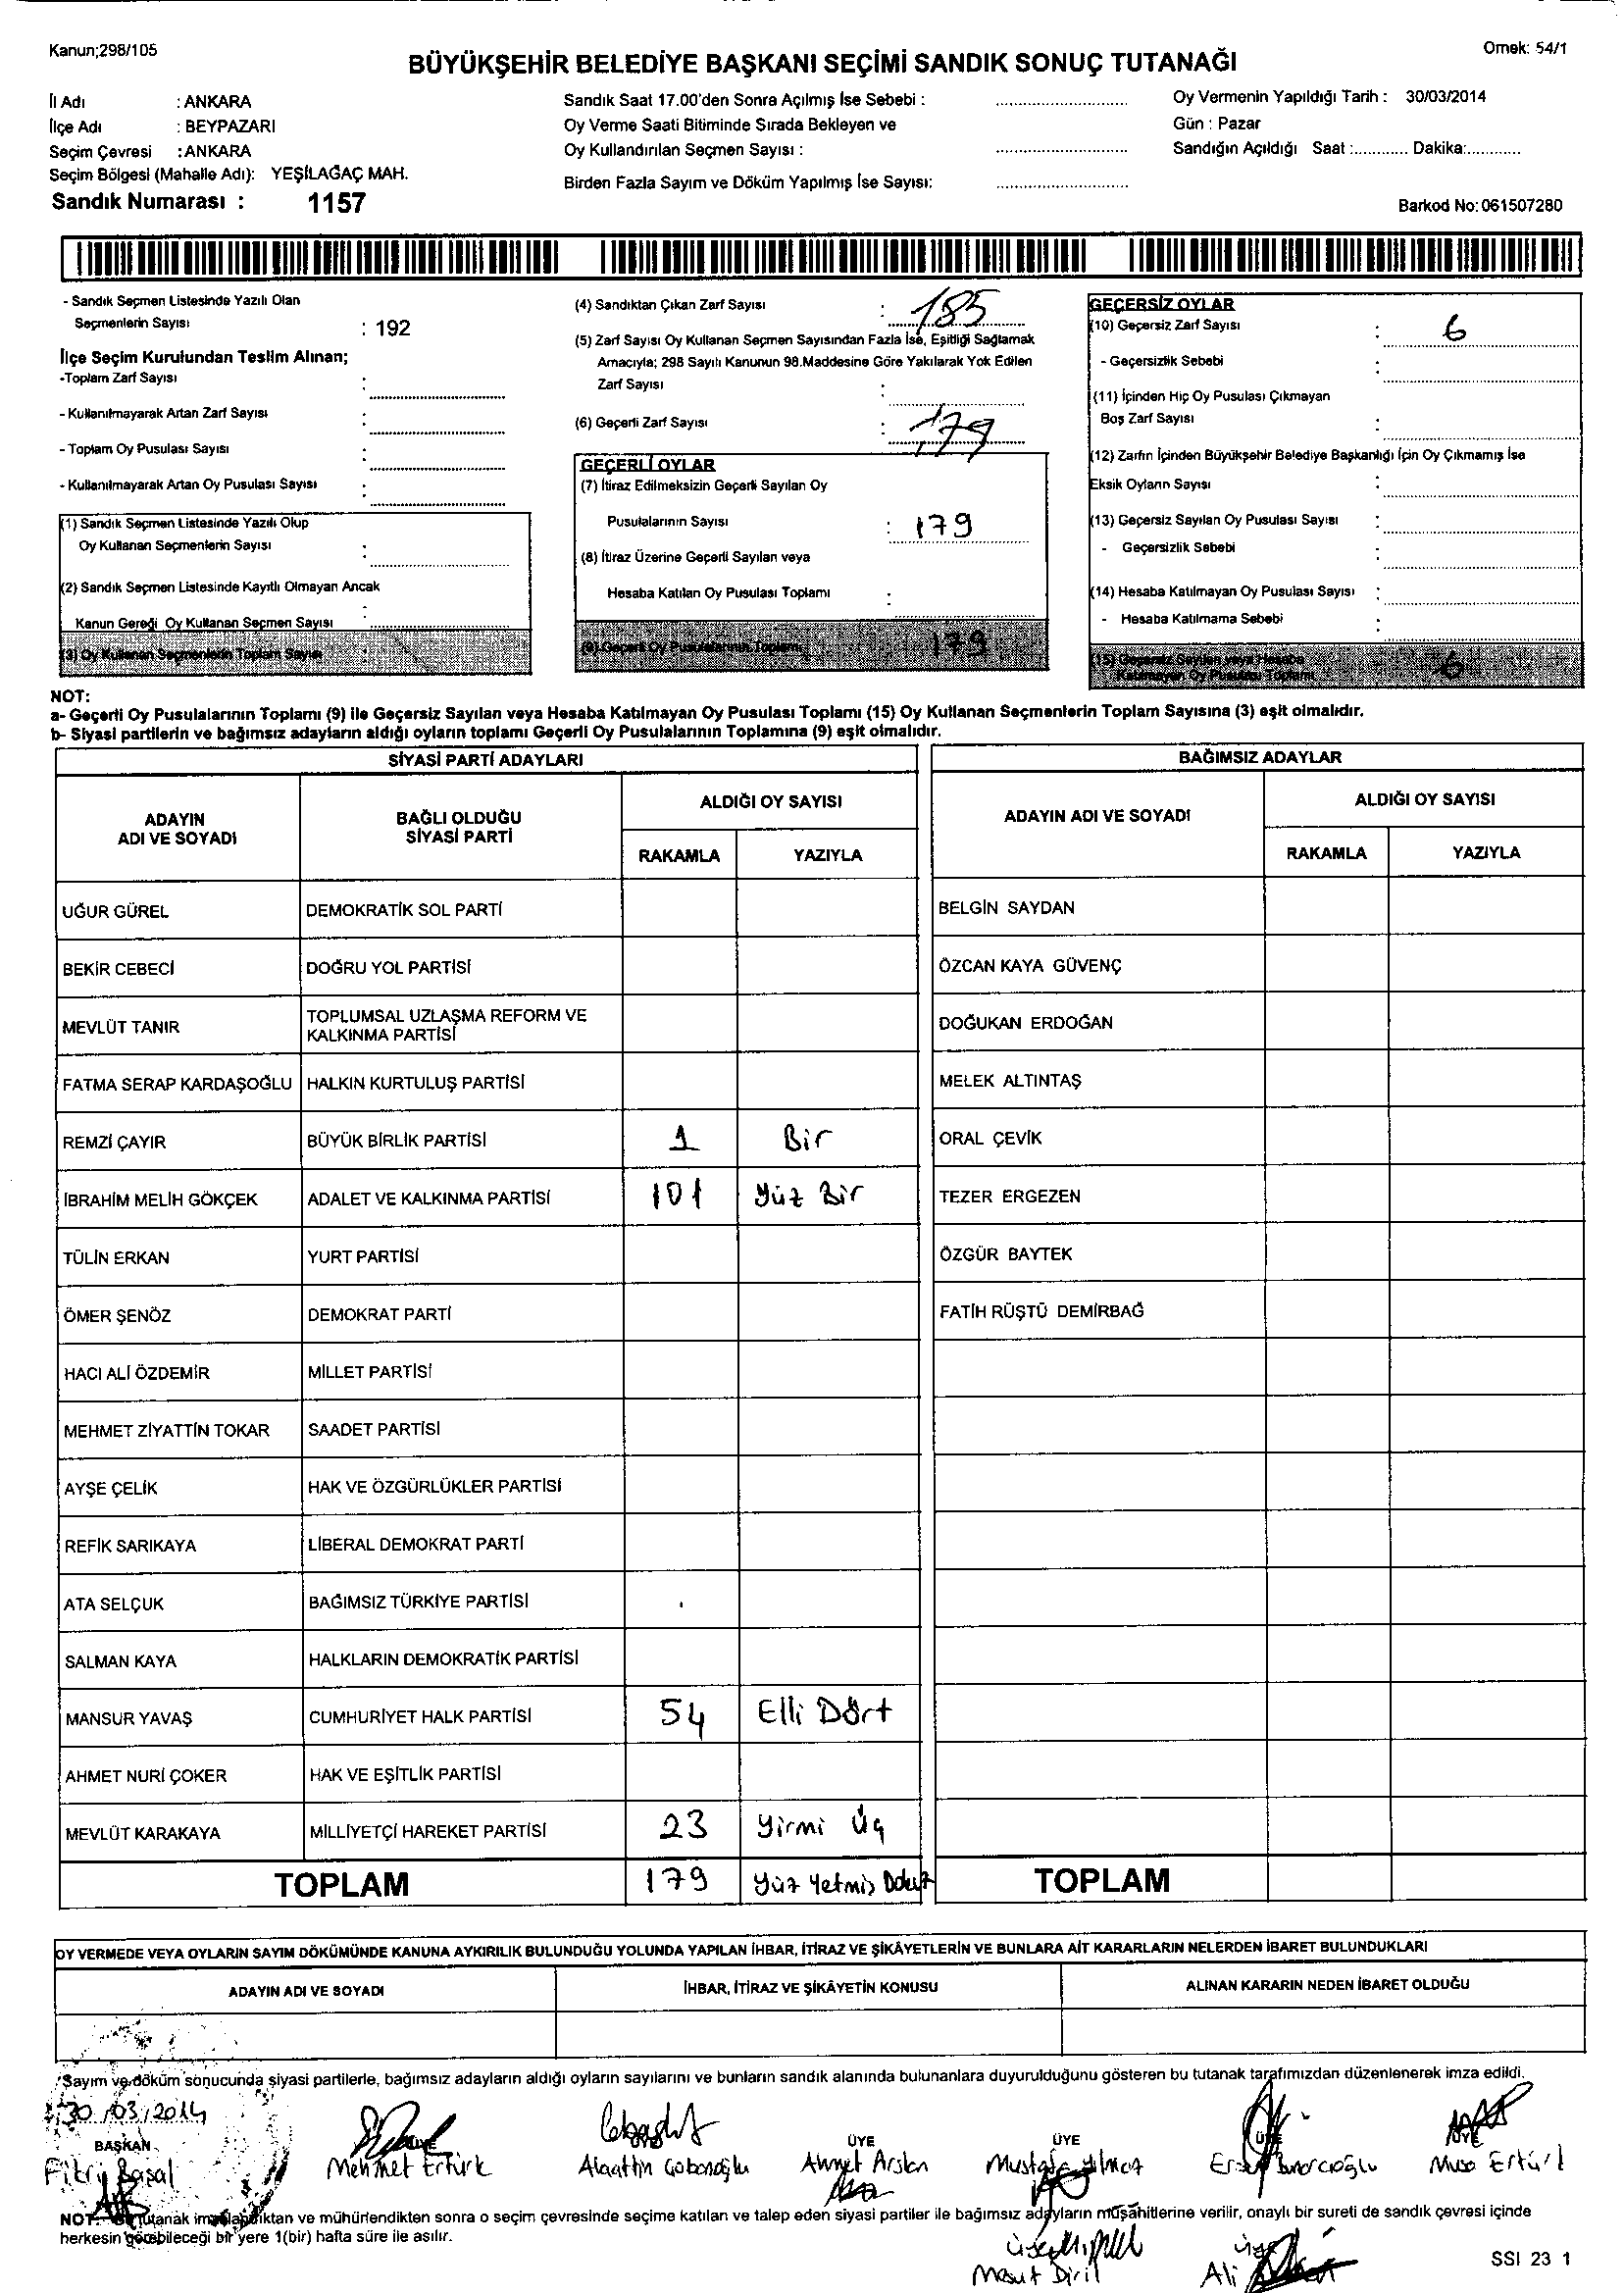 Kanun;298/105
Ornek: 54/1
BÜYÜKŞEHİR BELEDİYE BAŞKANI SEÇİMİ SANDIK SONUÇ TUTANAĞI
İl Adı : ANKARA
İlçe Adı : BEYPAZARI
Seçim Çevresi : ANKARA
Seçim Bölgesi (Mahalle Adı): YEŞİLAĞAÇ MAH.
Sandık Numarası : 1157
Sandık Saat 17.00'den Sonra Açılmış İse Sebebi :
Oy Verme Saati Bitiminde Sırada Bekleyen ve
Oy Kullandırılan Seçmen Sayısı :
Birden Fazla Sayım ve Döküm Yapılmış İse Sayısı:
Oy Vermenin Yapıldığı Tarih : 30/03/2014
Gün : Pazar
Sandığın Açıldığı Saat :............ Dakika:............
Barkod No: 061507280
- Sandık Seçmen Listesinde Yazılı Olan
Seçmenlerin Sayısı : 192
İlçe Seçim Kurulundan Teslim Alınan;
-Toplam Zarf Sayısı :
- Kullanılmayarak Artan Zarf Sayısı :
- Toplam Oy Pusulası Sayısı :
- Kullanılmayarak Artan Oy Pusulası Sayısı :
(1) Sandık Seçmen Listesinde Yazılı Olup
Oy Kullanan Seçmenlerin Sayısı :
(2) Sandık Seçmen Listesinde Kayıtlı Olmayan Ancak
Kanun Gereği Oy Kullanan Seçmen Sayısı :
(3) Oy Kullanan Seçmenlerin Toplam Sayısı :
(4) Sandıktan Çıkan Zarf Sayısı : 185
(5) Zarf Sayısı Oy Kullanan Seçmen Sayısından Fazla İse, Eşitliği Sağlamak
Amacıyla; 298 Sayılı Kanunun 98.Maddesine Göre Yakılarak Yok Edilen
Zarf Sayısı :
(6) Geçerli Zarf Sayısı : 179
GEÇERLİ OYLAR
(7) İtiraz Edilmeksizin Geçerli Sayılan Oy
Pusulalarının Sayısı : 179
(8) İtiraz Üzerine Geçerli Sayılan veya
Hesaba Katılan Oy Pusulası Toplamı :
(9) Geçerli Oy Pusulalarının Toplamı 179
GEÇERSİZ OYLAR
(10) Geçersiz Zarf Sayısı : 6
- Geçersizlik Sebebi :
(11) İçinden Hiç Oy Pusulası Çıkmayan
Boş Zarf Sayısı :
(12) Zarfın İçinden Büyükşehir Belediye Başkanlığı İçin Oy Çıkmamış İse
Eksik Oyların Sayısı :
(13) Geçersiz Sayılan Oy Pusulası Sayısı :
- Geçersizlik Sebebi :
(14) Hesaba Katılmayan Oy Pusulası Sayısı :
- Hesaba Katılmama Sebebi :
(15) Geçersiz Sayılan veya Hesaba
Katılmayan Oy Pusulası Toplamı 6
NOT:
a- Geçerli Oy Pusulalarının Toplamı (9) ile Geçersiz Sayılan veya Hesaba Katılmayan Oy Pusulası Toplamı (15) Oy Kullanan Seçmenlerin Toplam Sayısına (3) eşit olmalıdır.
b- Siyasi partilerin ve bağımsız adayların aldığı oyların toplamı Geçerli Oy Pusulalarının Toplamına (9) eşit olmalıdır.
SİYASİ PARTİ ADAYLARI
ADAYIN ADI VE SOYADI
BAĞLI OLDUĞU SİYASİ PARTİ
ALDIĞI OY SAYISI
RAKAMLA YAZIYLA
UĞUR GÜREL DEMOKRATİK SOL PARTİ
BEKİR CEBECİ DOĞRU YOL PARTİSİ
MEVLÜT TANIR TOPLUMSAL UZLAŞMA REFORM VE
KALKINMA PARTİSİ
FATMA SERAP KARDAŞOĞLU HALKIN KURTULUŞ PARTİSİ
REMZİ ÇAYIR BÜYÜK BİRLİK PARTİSİ 1 Bir
İBRAHİM MELİH GÖKÇEK ADALET VE KALKINMA PARTİSİ 101 Yüz Bir
TÜLİN ERKAN YURT PARTİSİ
ÖMER ŞENÖZ DEMOKRAT PARTİ
HACI ALİ ÖZDEMİR MİLLET PARTİSİ
MEHMET ZİYATTİN TOKAR SAADET PARTİSİ
AYŞE ÇELİK HAK VE ÖZGÜRLÜKLER PARTİSİ
REFİK SARIKAYA LİBERAL DEMOKRAT PARTİ
ATA SELÇUK BAĞIMSIZ TÜRKİYE PARTİSİ
SALMAN KAYA HALKLARIN DEMOKRATİK PARTİSİ
MANSUR YAVAŞ CUMHURİYET HALK PARTİSİ 54 Elli Dört
AHMET NURİ ÇOKER HAK VE EŞİTLİK PARTİSİ
MEVLÜT KARAKAYA MİLLİYETÇİ HAREKET PARTİSİ 23 Yirmi Üç
TOPLAM 179 Yüz Yetmiş Dokuz
BAĞIMSIZ ADAYLAR
ADAYIN ADI VE SOYADI
ALDIĞI OY SAYISI
RAKAMLA YAZIYLA
BELGİN SAYDAN
ÖZCAN KAYA GÜVENÇ
DOĞUKAN ERDOĞAN
MELEK ALTINTAŞ
ORAL ÇEVİK
TEZER ERGEZEN
ÖZGÜR BAYTEK
FATİH RÜŞTÜ DEMİRBAĞ
TOPLAM
OY VERMEDE VEYA OYLARIN SAYIM DÖKÜMÜNDE KANUNA AYKIRILIK BULUNDUĞU YOLUNDA YAPILAN İHBAR, İTİRAZ VE ŞİKÂYETLERİN VE BUNLARA AİT KARARLARIN NELERDEN İBARET BULUNDUKLARI
ADAYIN ADI VE SOYADI İHBAR, İTİRAZ VE ŞİKÂYETİN KONUSU ALINAN KARARIN NEDEN İBARET OLDUĞU
Sayım ve döküm sonucunda siyasi partilerle, bağımsız adayların aldığı oyların sayılarını ve bunların sandık alanında bulunanlara duyurulduğunu gösteren bu tutanak tarafımızdan düzenlenerek imza edildi.
30/03/2014
BAŞKAN ÜYE ÜYE ÜYE ÜYE ÜYE
Fikri Başal Mehmet Ertürk Alaattin Çobanoğlu Ahmet Arslan Mustafa Yılmaz Musa Ertürk
NOT: Bu tutanak imzalandıktan ve mühürlendikten sonra o seçim çevresinde seçime katılan ve talep eden siyasi partiler ile bağımsız adayların müşahitlerine verilir, onaylı bir sureti de sandık çevresi içinde
herkesin görebileceği bir yere 1(bir) hafta süre ile asılır.
Üye
Mesut Diril Ali
SSI 23 1